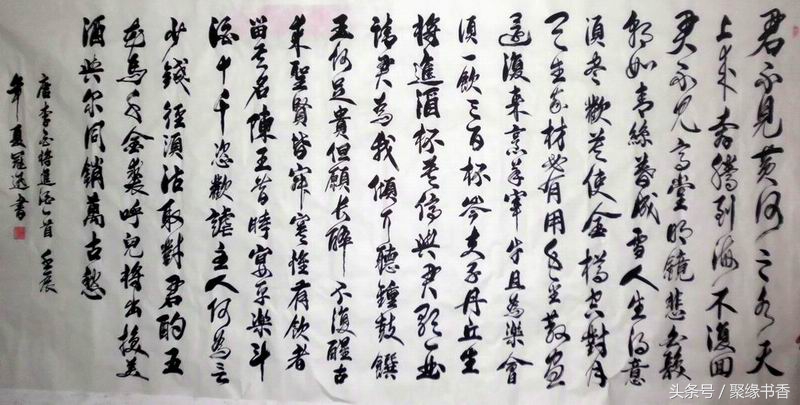 君不見黄河之水天
上来奔騰到海不復回
君不見高堂明鏡悲白髮
朝如青絲暮成雪人生得意
須盡歡莫使金樽空對月
天生我材必有用千金散盡
還復来烹羊宰牛且為樂會
須一飲三百杯岑夫子丹丘生
將進酒杯莫停與君歌一曲
請君為我傾耳聽鐘鼓饌
玉何足貴但願長醉不復醒古
來聖賢皆寂寞惟有飲者
留其名陳王昔時宴平樂斗
酒十千恣歡謔主人何為言
少錢徑須沽取對君酌五
花馬千金裘呼兒將出換美
酒與尔同銷萬古愁
唐李白將進酒一首 壬辰
年夏書
头条号 / 聚缘书香